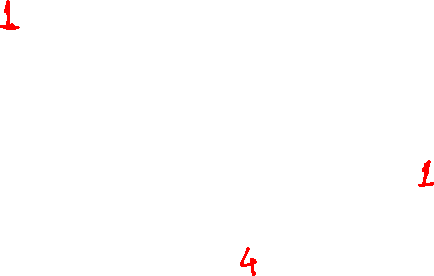 1
1
4